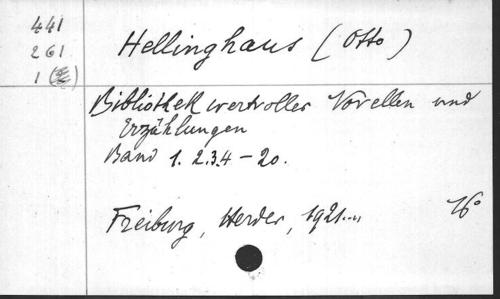 441
261
1
Hellinghaus (Otto)
Bibliothek wertvoller Novellen und
Erzählungen
Band 1. 2.3.4 - 20.
Freiburg, Herder, 1921....
16°